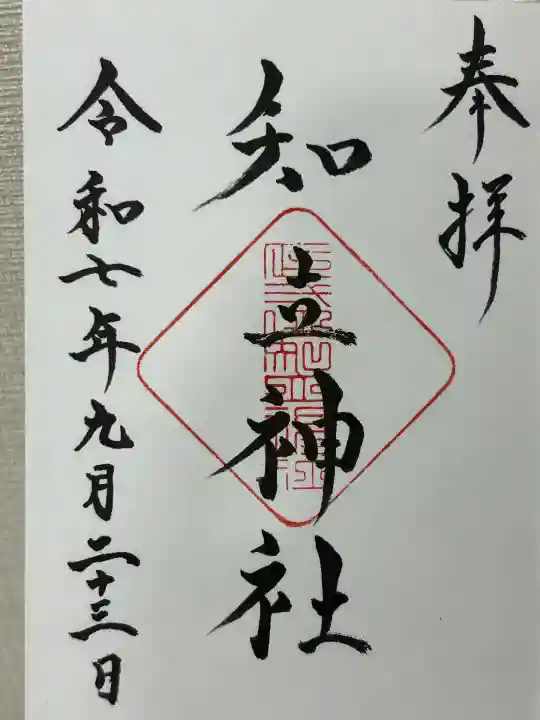 奉拝
知立神社
令和七年九月二十三日